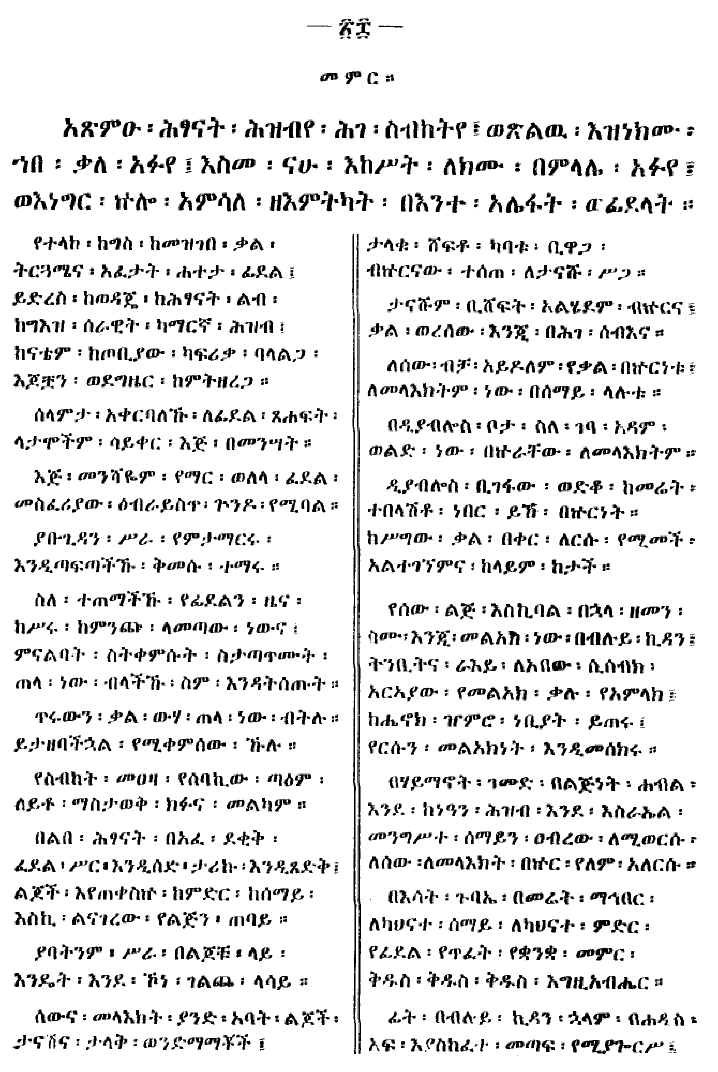 — ፳፰ —
መምር።
አጽምዑ፡ሕፃናት፡ሕዝብየ፡ሕገ፡ስብከትየ፤ወጽልዉ፡እዝነክሙ፡
ኀበ፡ቃለ፡አፉየ፤እስመ፡ናሁ፡እከሥት፡ለክሙ፡በምላሌ፡አፉየ፤
ወእነግር፡ኵሎ፡አምሳለ፡ዘእምትካት፡በእንተ፡አሌፋት፡ወፊደላት።
የተላከ፡ከግስ፡ከመዝገበ፡ቃል፡
ትርጓሜና፡አፈታት፡ሐተታ፡ፊደል፤
ይድረስ፡ከወዳጄ፡ከሕፃናት፡ልብ፡
ከግእዝ፡ሰራዊት፡ካማርኛ፡ሕዝብ፤
ከናቴም፡ከጦቢያው፡ካፍሪቃ፡ባላልጋ፡
እጆቿን፡ወደግዜር፡ከምትዘረጋ።
ሰላምታ፡አቀርባለኹ፡ለፊደል፡ጸሐፍት፡
ላታሞችም፡ሳይቀር፡እጅ፡በመንሣት።
እጅ፡መንሻዬም፡የማር፡ወለላ፡ፈደል፡
መስፈሪያው፡ዕብራይስጥ፡ጕንዶ፡የሚባል።
ያበጊዳን፡ሥራ፡የምታማርሩ፡
እንዲጣፍጣችኹ፡ቅመሱ፡ተማሩ።
ስለ፡ተጠማችኹ፡የፊደልን፡ዜና፡
ከሥሩ፡ከምንጩ፡ላመጣው፡ነውና፤
ምናልባት፡ስትቀምሱት፡ስታጣጥሙት፡
ጠላ፡ነው፡ብላችኹ፡ስም፡እንዳትሰጡት።
ጥሩውን፡ቃል፡ውሃ፡ጠላ፡ነው፡ብትሉ።
ይታዘባችኋል፡የሚቀምሰው፡ኹሉ።
የስብከት፡መዐዛ፡የሰባኪው፡ጣዕም፡
ለይቶ፡ማስታወቅ፡ክፉና፡መልካም።
በልበ፡ሕፃናት፡በአፈ፡ደቂቅ፡
ፈደል፡ሥር፡እንዲሰድ፡ታሪኩ፡እንዲጸድቅ፤
ልጆች፡እየጠቀስኩ፡ከምድር፡ከሰማይ፡
እስኪ፡ልናገረው፡የልጅን፡ጠባይ።
ያባትንም፡ሥራ፡በልጆቹ፡ላይ፡
እንዴት፡እንደ፡ኾነ፡ገልጨ፡ላሳይ።
ሰውና፡መላእክት፡ያንድ፡አባት፡ልጆች፡
ታናሽና፡ታላቅ፡ወንድማማቾች፤
ታላቁ፡ሸፍቶ፡ካባቱ፡ቢዋጋ፡
ብኵርናው፡ተሰጠ፡ለታናሹ፡ሥጋ።
ታናሹም፡ቢሸፍት፡አልሄደም፡ብኵርና፤
ቃል፡ወረሰው፡እንጂ፡በሕገ፡ሰብእና።
ለሰው፡ብቻ፡አይዶለም፡የቃል፡በኵርነቱ፤
ለመላእክትም፡ነው፡በሰማይ፡ላሉቱ።
በዲያብሎስ፡ቦታ፡ስለ፡ገባ፡አዳም፡
ወልድ፡ነው፡በኵራቸው፡ለመላእክትም።
ዲያብሎስ፡ቢገፋው፡ወድቆ፡ከመሬት፡
ተበላሽቶ፡ነበር፡ይኸ፡በኵርነት።
ከሥግው፡ቃል፡በቀር፡ለርሱ፡የሚመች፡
አልተገኘምና፡ከላይም፡ከታች።
የሰው፡ልጅ፡እስኪባል፡በኋላ፡ዘመን፡
ስሙ፡እንጂ፡መልአክ፡ነው፡በብሉይ፡ኪዳን፤
ትንቢትና፡ራእይ፡ለአበው፡ሲሰብክ፡
አርኣያው፡የመልአክ፡ቃሉ፡የአምላክ፤
ከሔኖክ፡ዠምሮ፡ነቢያት፡ይጠሩ፤
የርሱን፡መልአክነት፡እንዲመሰክሩ።
በሃይማኖት፡ገመድ፡በልጅነት፡ሐብል፡
እንደ፡ከነዓን፡ሕዝብ፡እንደ፡እስራኤል፡
መንግሥተ፡ሰማይን፡ዐብረው፡ለሚወርሱ፡
ለሰው፡ለመላእክት፡በኵር፡የለም፡አለርሱ።
በእሳት፡ጉባኤ፡በመሬት፡ማኅበር፡
ለካህናተ፡ሰማይ፡ለካህናተ፡ምድር፡
የፊደል፡የጥፈት፡የቋንቋ፡መምር፡
ቅዱስ፡ቅዱስ፡ቅዱስ፡እግዚአብሔር።
ፊት፡በብሉይ፡ኪዳን፡ኋላም፡በሐዲስ፡
አፍ፡እያስከፈተ፡መጣፍ፡የሚያጐርሥ፤